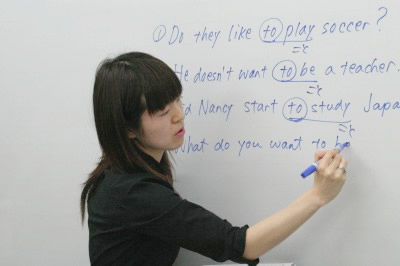 ① Do they like to play soccer?
こと
He doesn't want to be a teacher.
こと
Nancy start to study Japa
こと
What do you want to